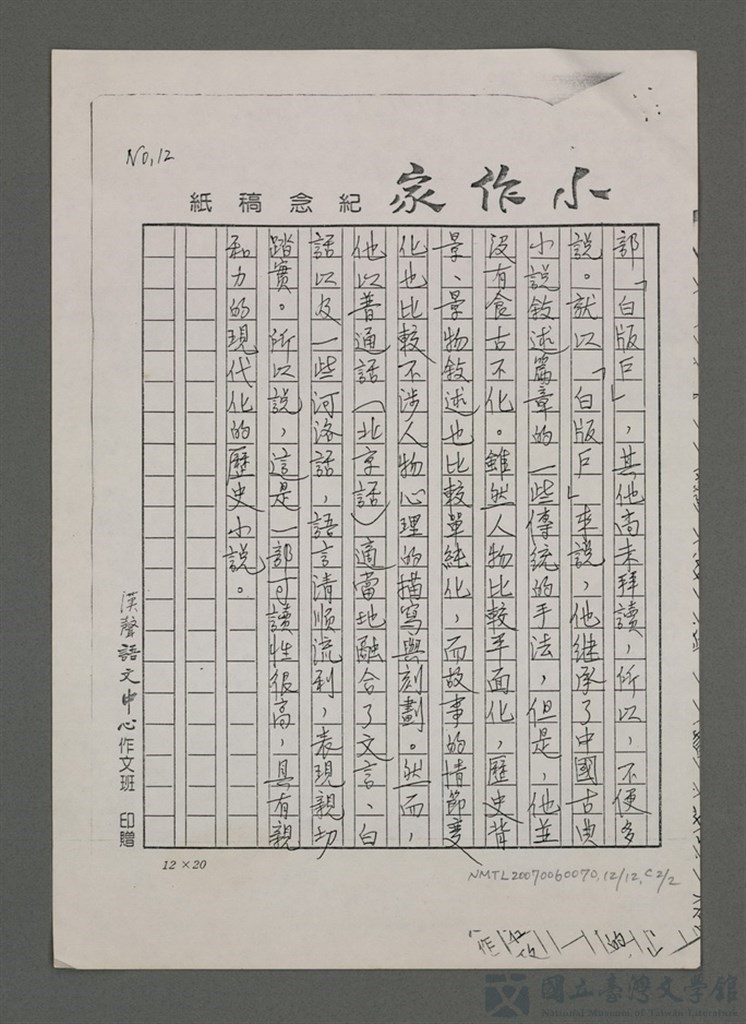 No, 12
小作家
紀念稿紙
部「白版戶」，其他尚未拜讀，所以，不便多
說。就以「白版戶」來說，他繼承了中國古典
小說敘述篇章的一些傳統的手法，但是，他並
沒有食古不化。雖然人物比較平面化，歷史背
景、景物敘述也比較單純化，而故事的情節變
化也比較不涉人物心理的描寫與刻劃。然而，
他以普通話（北京話）適當地融合了文言、白
話以及一些河洛話，語言清順流利，表現親切
踏實。所以說，這是一部可讀性很高，具有親
和力的現代化的歷史小說。
漢聲語文中心作文班 印贈
12×20
NMTL20070060070,12/12, C2/2
國立臺灣文學館
National Museum of Taiwan Literature